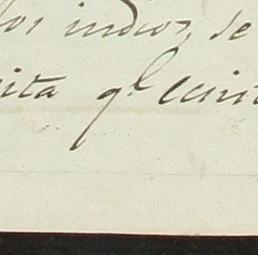 los indios, se
ita ql